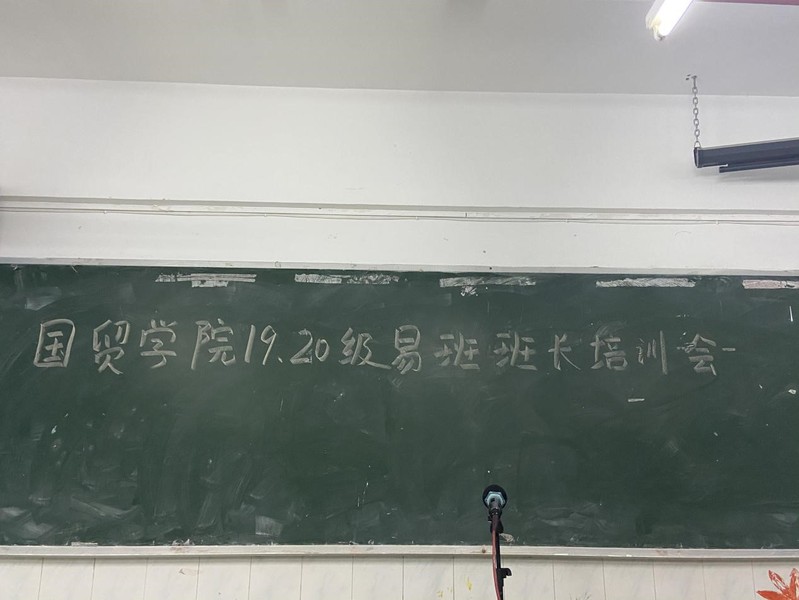 国贸学院19、20级易班班长培训会